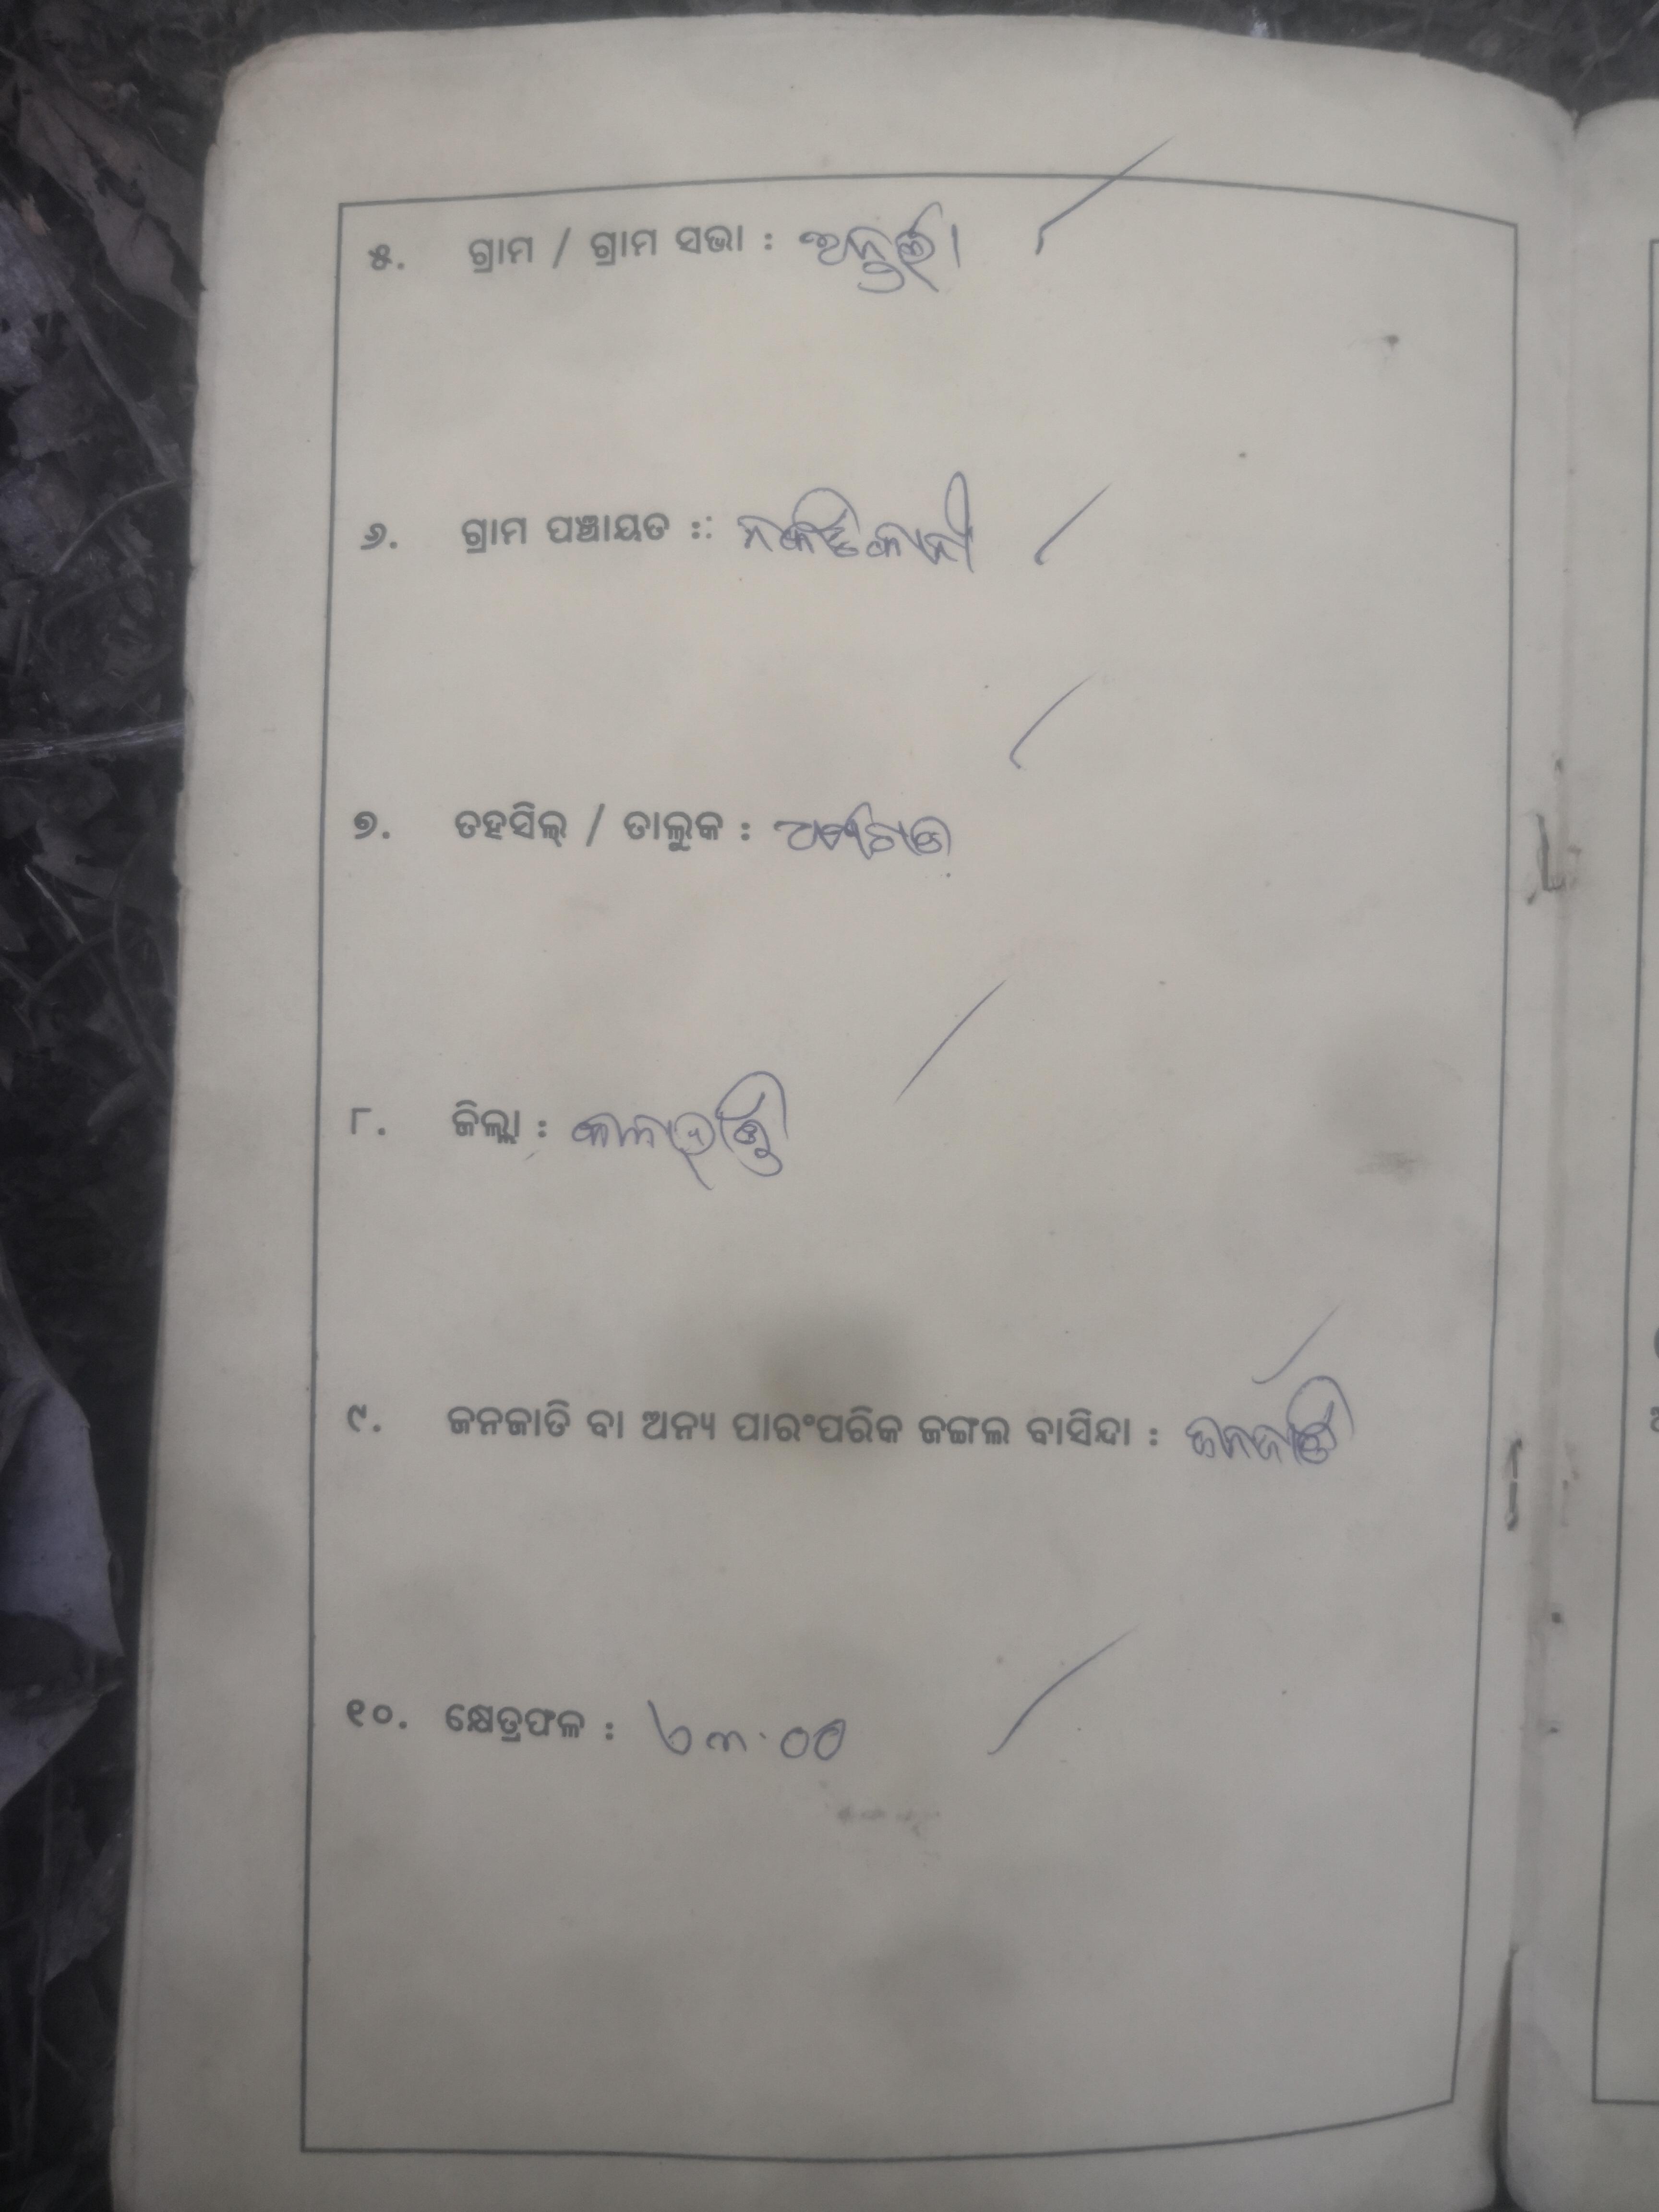 ୫. ଗ୍ରାମ / ଗ୍ରାମ ସଭା :
୬. ଗ୍ରାମ ପଞ୍ଚାୟତ :
୭. ତହସିଲ୍ / ତାଲୁକ :
୮. ଜିଲ୍ଲା : କଳାହାଣ୍ଡି
୯. ଜନଜାତି ବା ଅନ୍ୟ ପାରଂପରିକ ଜଙ୍ଗଲ ବାସିନ୍ଦା : ଜନଜାତି
୧୦. କ୍ଷେତ୍ରଫଳ :